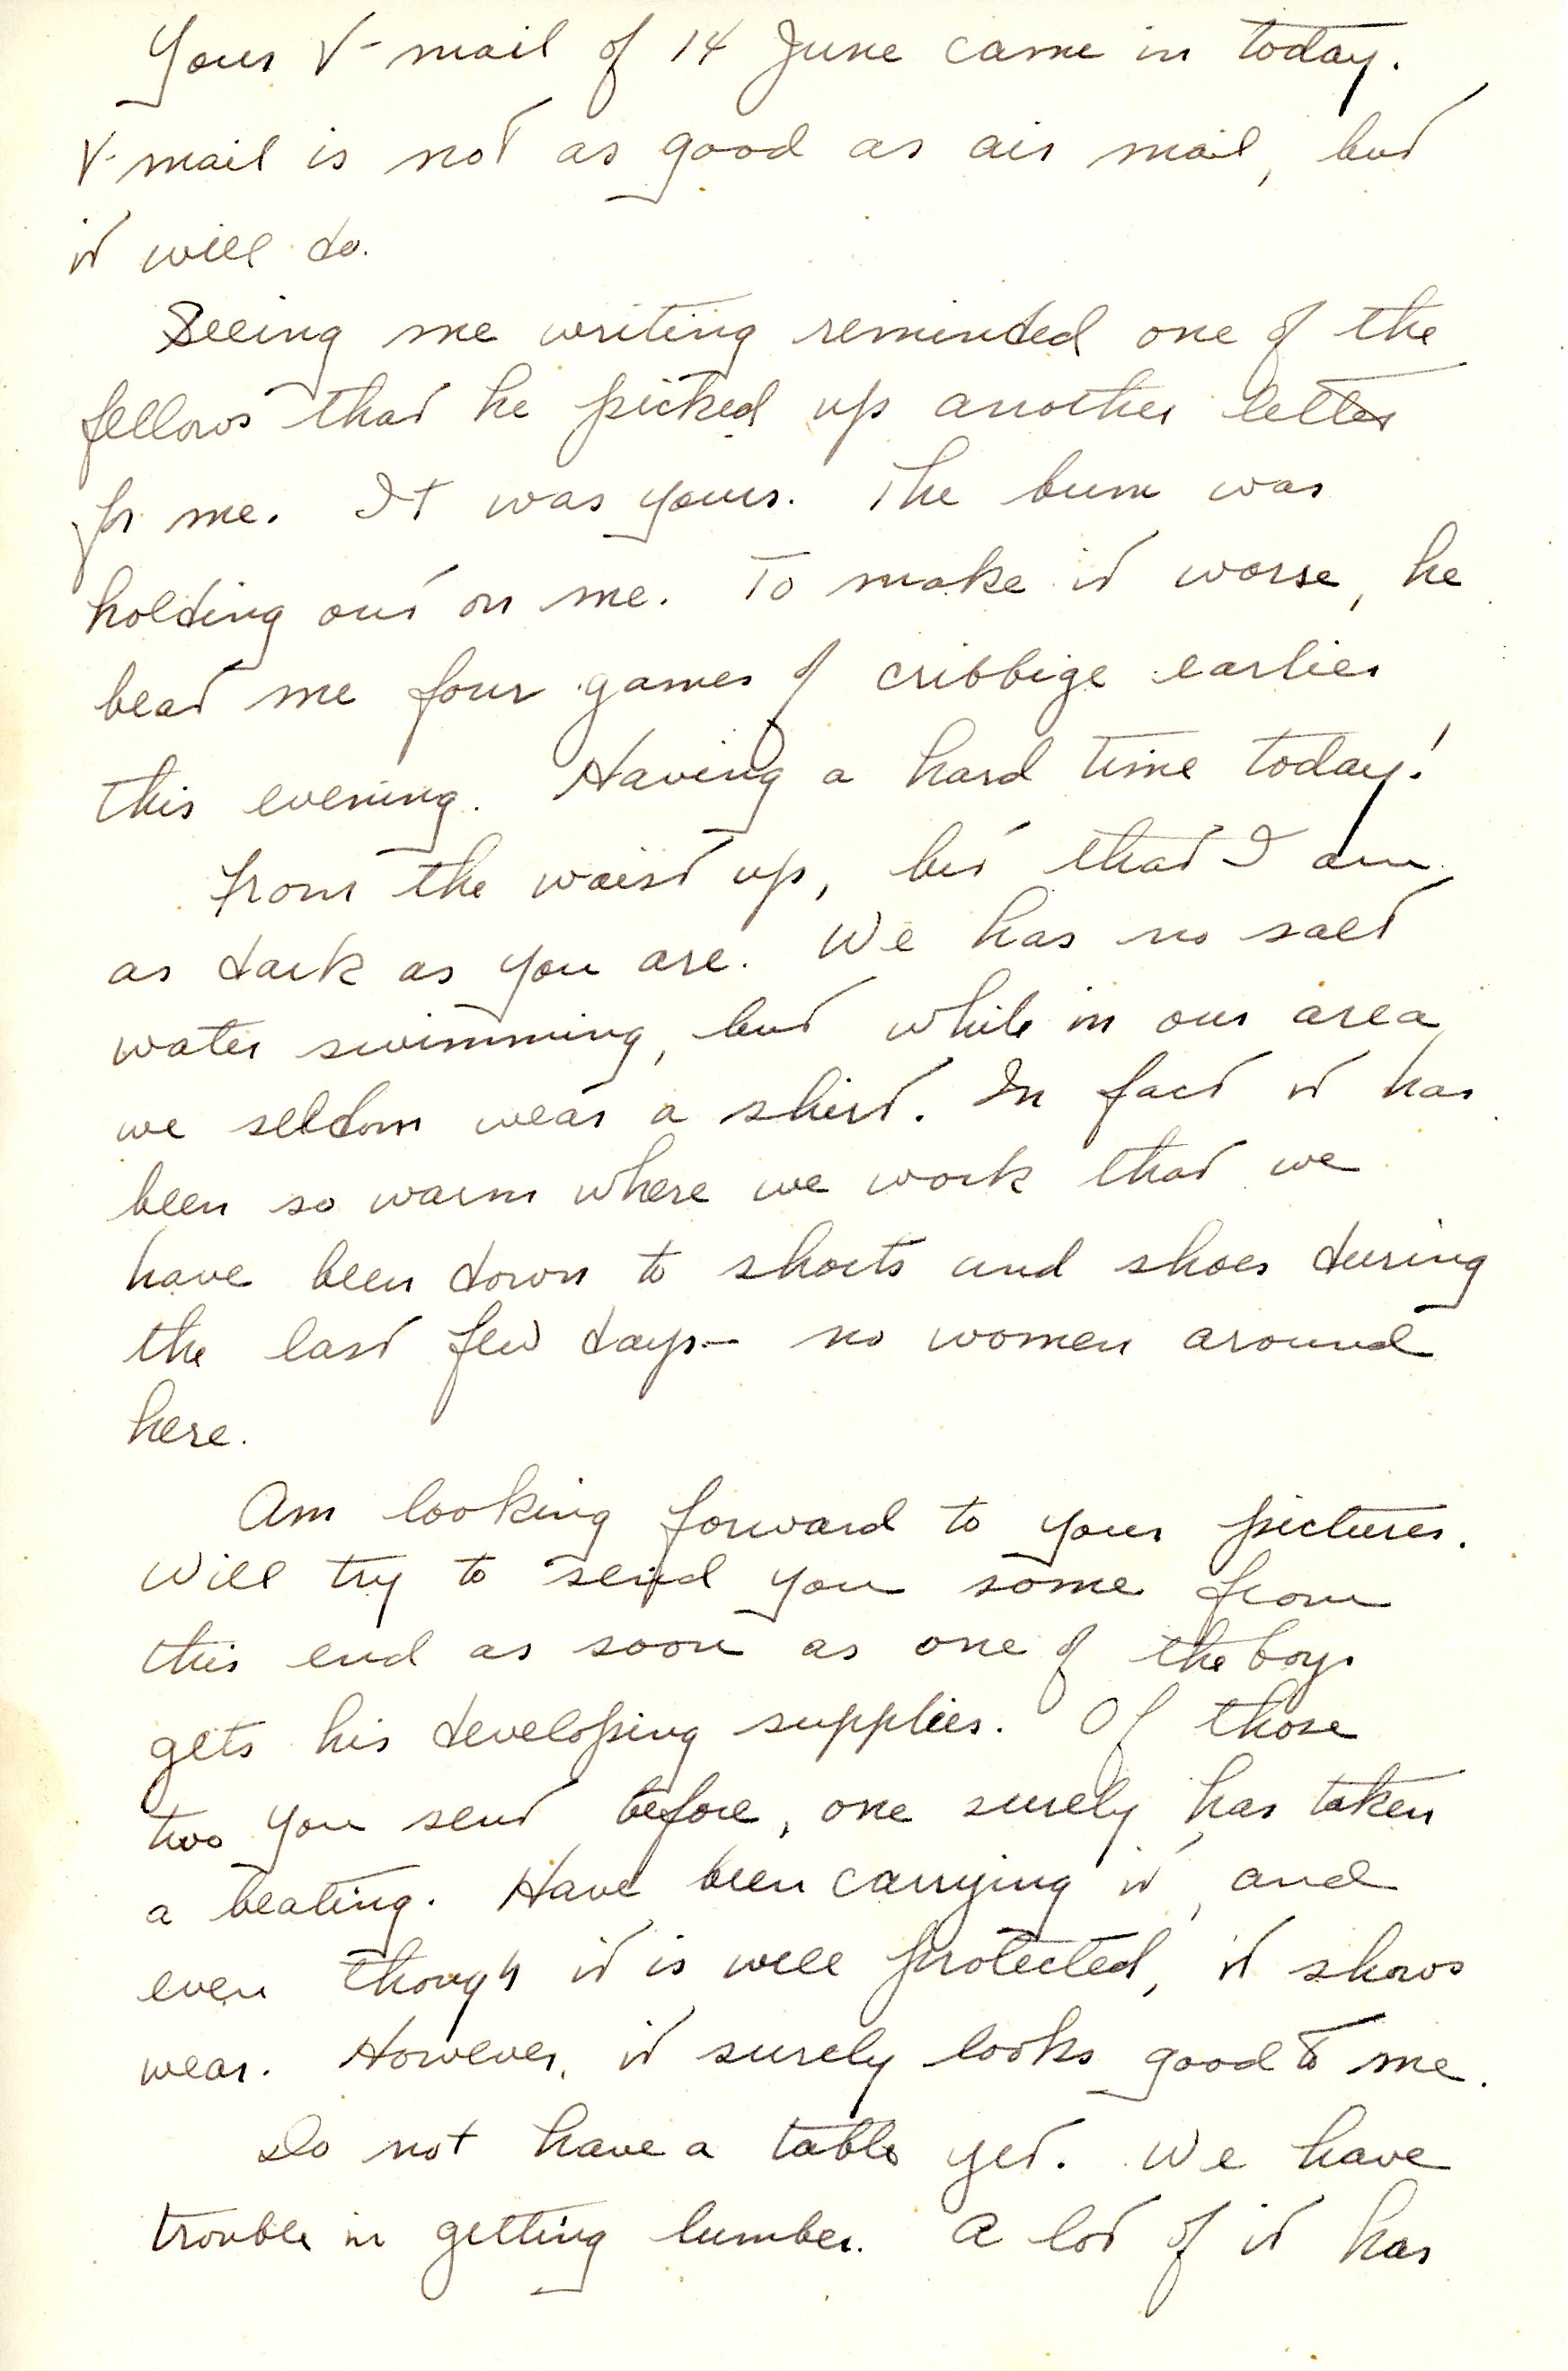 Your V-mail of 14 June came in today.
V-mail is not as good as air mail, but
it will do.
Seeing me writing reminded one of the
fellows that he picked up another letter
for me. It was yours. The bum was
holding out on me. To make it worse, he
beat me four games of cribbige earlier
this evening. Having a hard time today!
From the waist up, bet that I am
as dark as you are. We has no salt
water swimming, but while in our area,
we seldom wear a shirt. In fact it has
been so warm where we work that we
have been down to shorts and shoes during
the last few days - no women around
here.
Am looking forward to your pictures.
Will try to send you some from
this end as soon as one of the boys
gets his developing supplies. Of those
two you sent before, one surely has taken
a beating. Have been carrying it, and
even though it is well protected, it shows
wear. However, it surely looks good to me.
Do not have a table yet. We have
trouble in getting lumber. A lot of it has